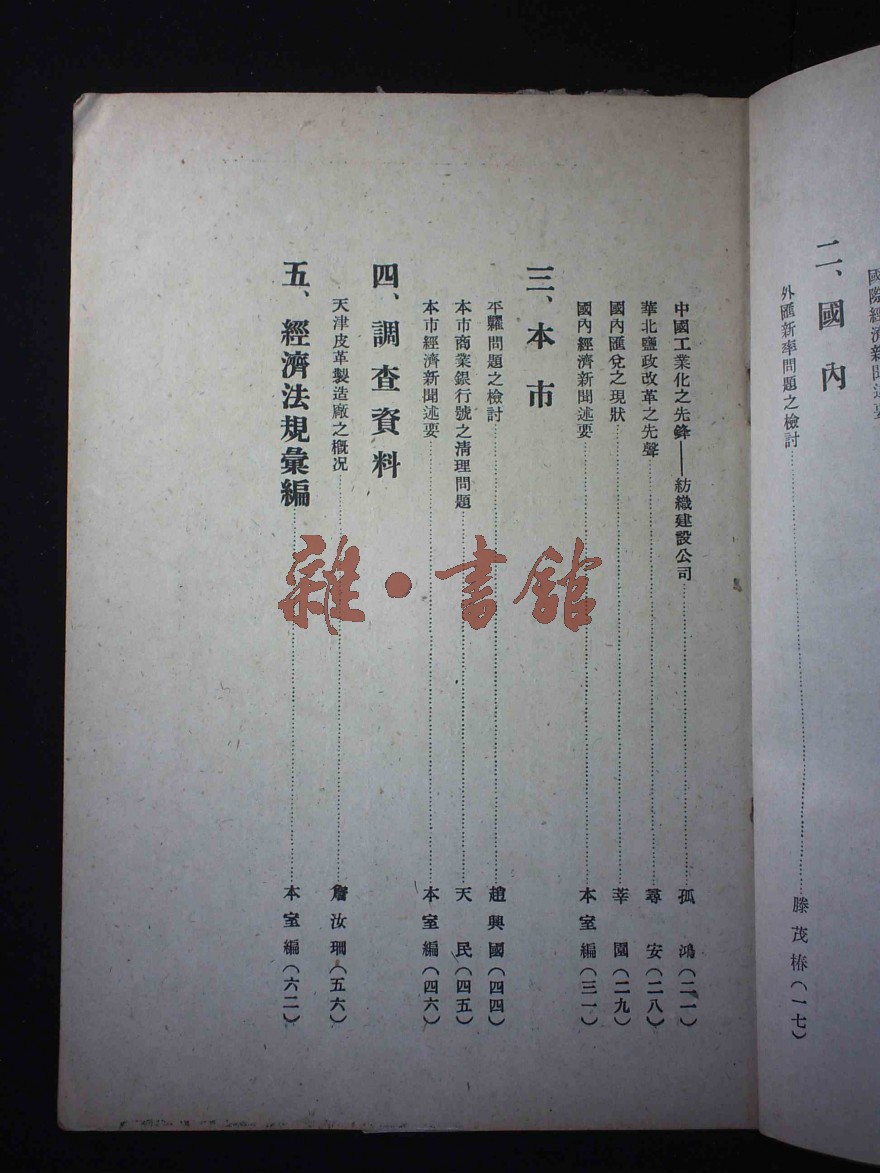 國際經濟新聞述要
二、國內
外匯新率問題之檢討……滕茂椿(一七)
中國工業化之先鋒——紡織建設公司……孤鴻(二一)
華北鹽政改革之先聲……尋安(二八)
國內匯兌之現狀……莘園(二九)
國內經濟新聞述要……本室編(三一)
三、本市
平糶問題之檢討……趙興國(四四)
本市商業銀行號之清理問題……天民(四五)
本市經濟新聞述要……本室編(四六)
四、調查資料
天津皮革製造廠之概況……詹汝珊(五六)
五、經濟法規彙編……本室編(六二)
雜·書館